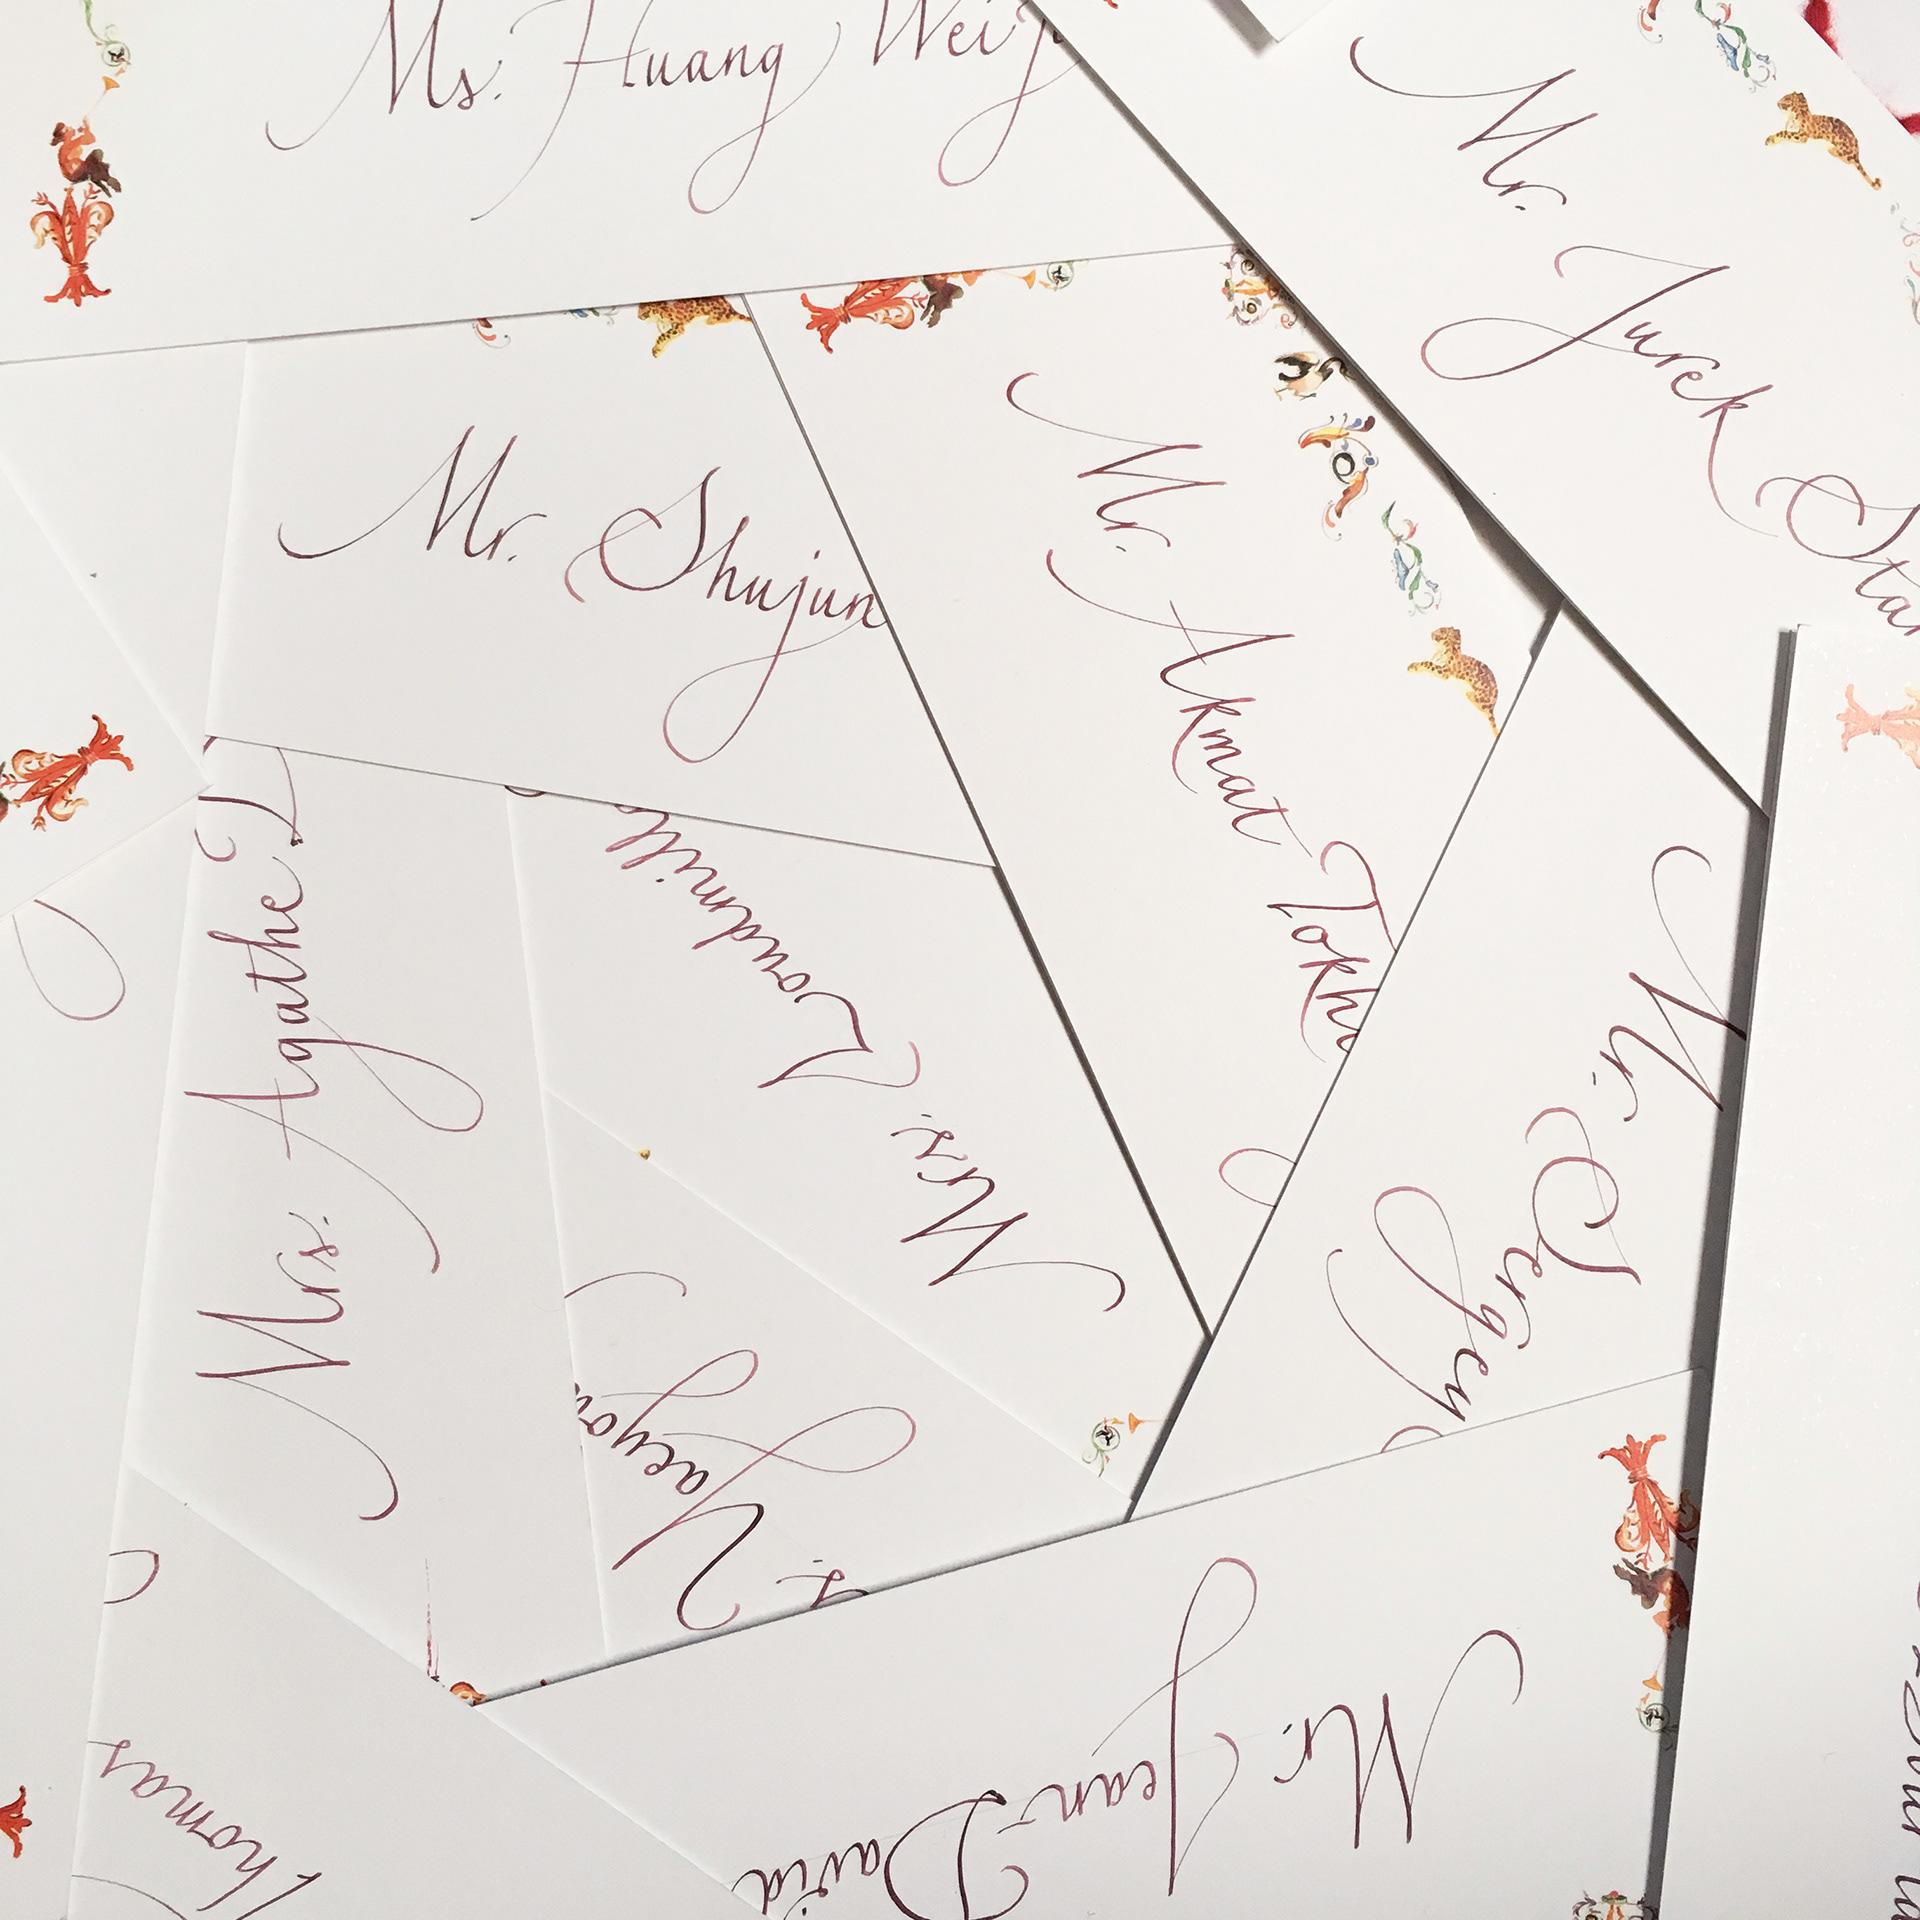 Ms. Huang Weij
Mr. Jurek Star
Mr. Shujun
Mr. Akmat Tokh
Mrs. Agathe
Mrs. Loudmill
Mr. Sergey
Yaeyo
Mr. Jean-David
Thomas